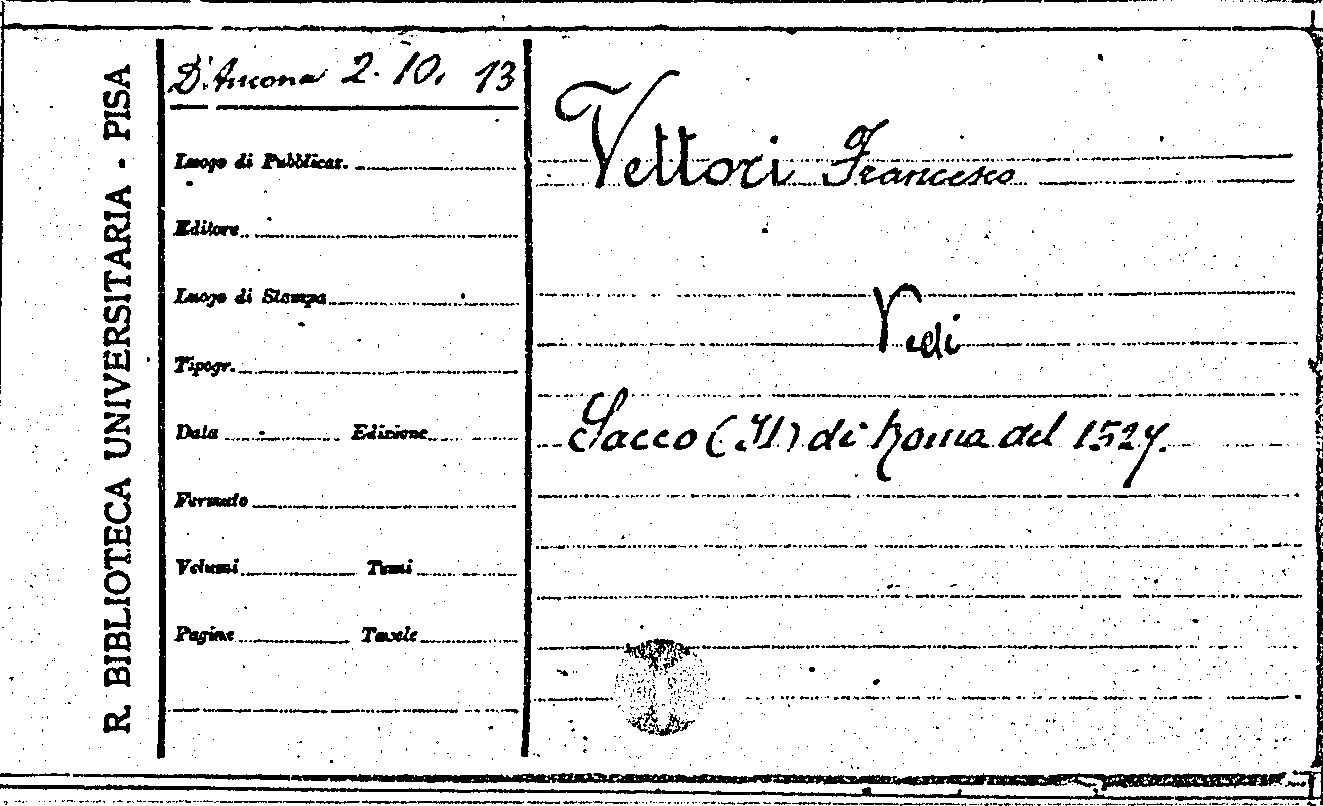 R. BIBLIOTECA UNIVERSITARIA - PISA
D'Ancona 2. 10. 13
Luogo di Pubblicaz.
Editore
Luogo di Stampa
Tipogr.
Data Edizione
Formato
Volumi Tomi
Pagine Tavole
Vettori Francesco
Vedi
Sacco (Il) di Roma del 1527.